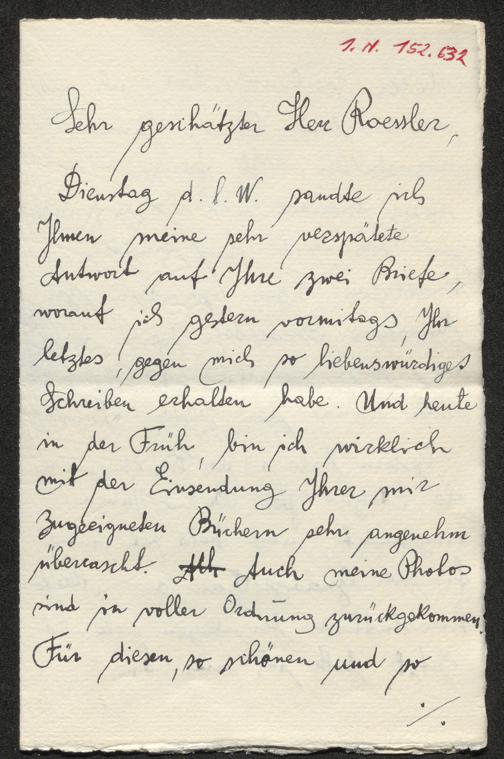 I. N. 152.632
Sehr geschätzter Herr Roessler,
Dienstag d. l. W. sandte ich
Ihnen meine sehr verspätete
Antwort auf Ihre zwei Briefe,
worauf ich gestern vormitags, Ihr
letztes, gegen mich so liebenswürdiges
Schreiben erhalten habe. Und heute
in der Früh, bin ich wirklich
mit der Einsendung Ihrer mir
zugeeigneten Büchern sehr angenehm
überrascht. Auch meine Photos
sind in voller Ordnung zurückgekommen.
Für diesen, so schönen und so
./.